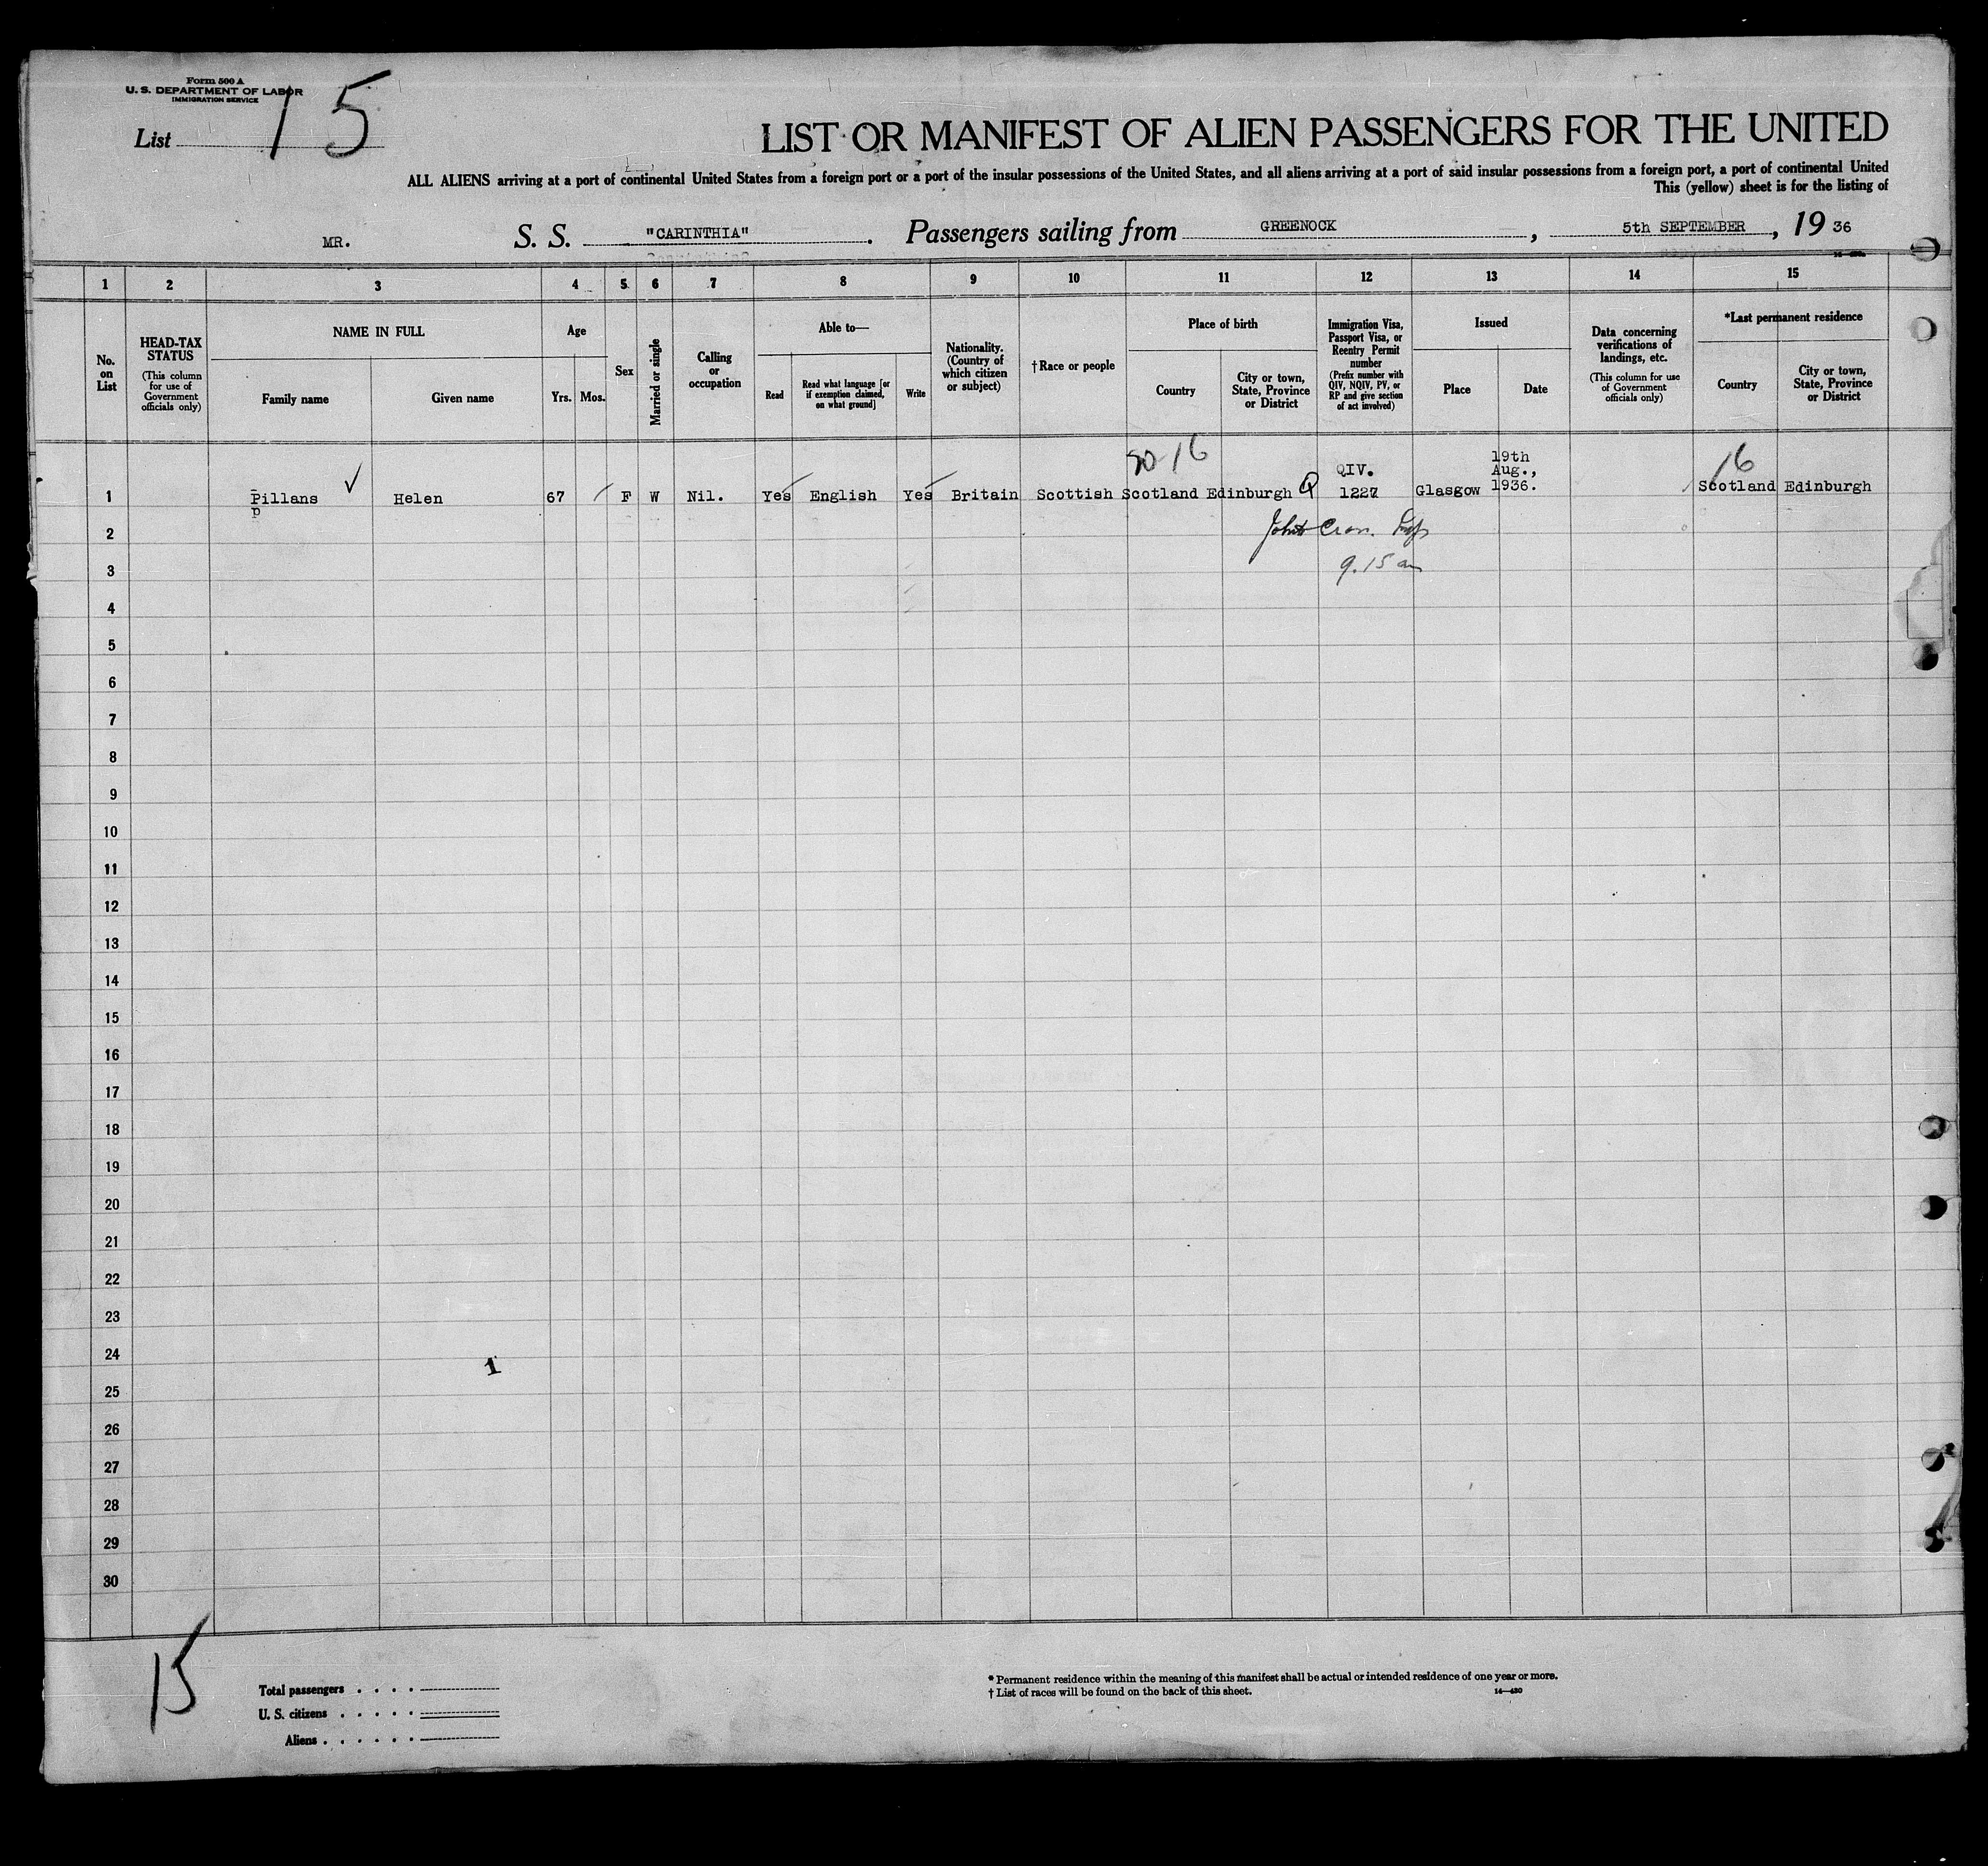 Form 500 A
U. S. DEPARTMENT OF LABOR
IMMIGRATION SERVICE
List 15
LIST OR MANIFEST OF ALIEN PASSENGERS FOR THE UNITED
ALL ALIENS arriving at a port of continental United States from a foreign port or a port of the insular possessions of the United States, and all aliens arriving at a port of said insular possessions from a foreign port, a port of continental United
This (yellow) sheet is for the listing of
MR. S. S. "CARINTHIA". Passengers sailing from GREENOCK, 5th SEPTEMBER, 19 36
1 2 3 4 5 6 7 8 9 10 11 12 13 14 15
No. on List
HEAD-TAX STATUS
(This column for use of Government officials only)
NAME IN FULL
Family name
Given name
Age
Yrs.
Mos.
Sex
Married or single
Calling or occupation
Able to—
Read
Read what language [or if exemption claimed, on what ground]
Write
Nationality. (Country of which citizen or subject)
†Race or people
Place of birth
Country
City or town, State, Province or District
Immigration Visa, Passport Visa, or Reentry Permit number
(Prefix number with QIV, NQIV, PV, or RP and give section of act involved)
Issued
Place
Date
Data concerning verifications of landings, etc.
(This column for use of Government officials only)
*Last permanent residence
Country
City or town, State, Province or District
16
1 Pillans Helen 67 F W Nil. Yes English Yes Britain Scottish Scotland Edinburgh Q QIV. 1227 Glasgow 19th Aug., 1936. Scotland Edinburgh
p
2
9.15 am
3
4
5
6
7
8
9
10
11
12
13
14
15
16
17
18
19
20
21
22
23
24
1
25
26
27
28
29
30
15
Total passengers
U. S. citizens
Aliens
* Permanent residence within the meaning of this manifest shall be actual or intended residence of one year or more.
† List of races will be found on the back of this sheet.
14—430